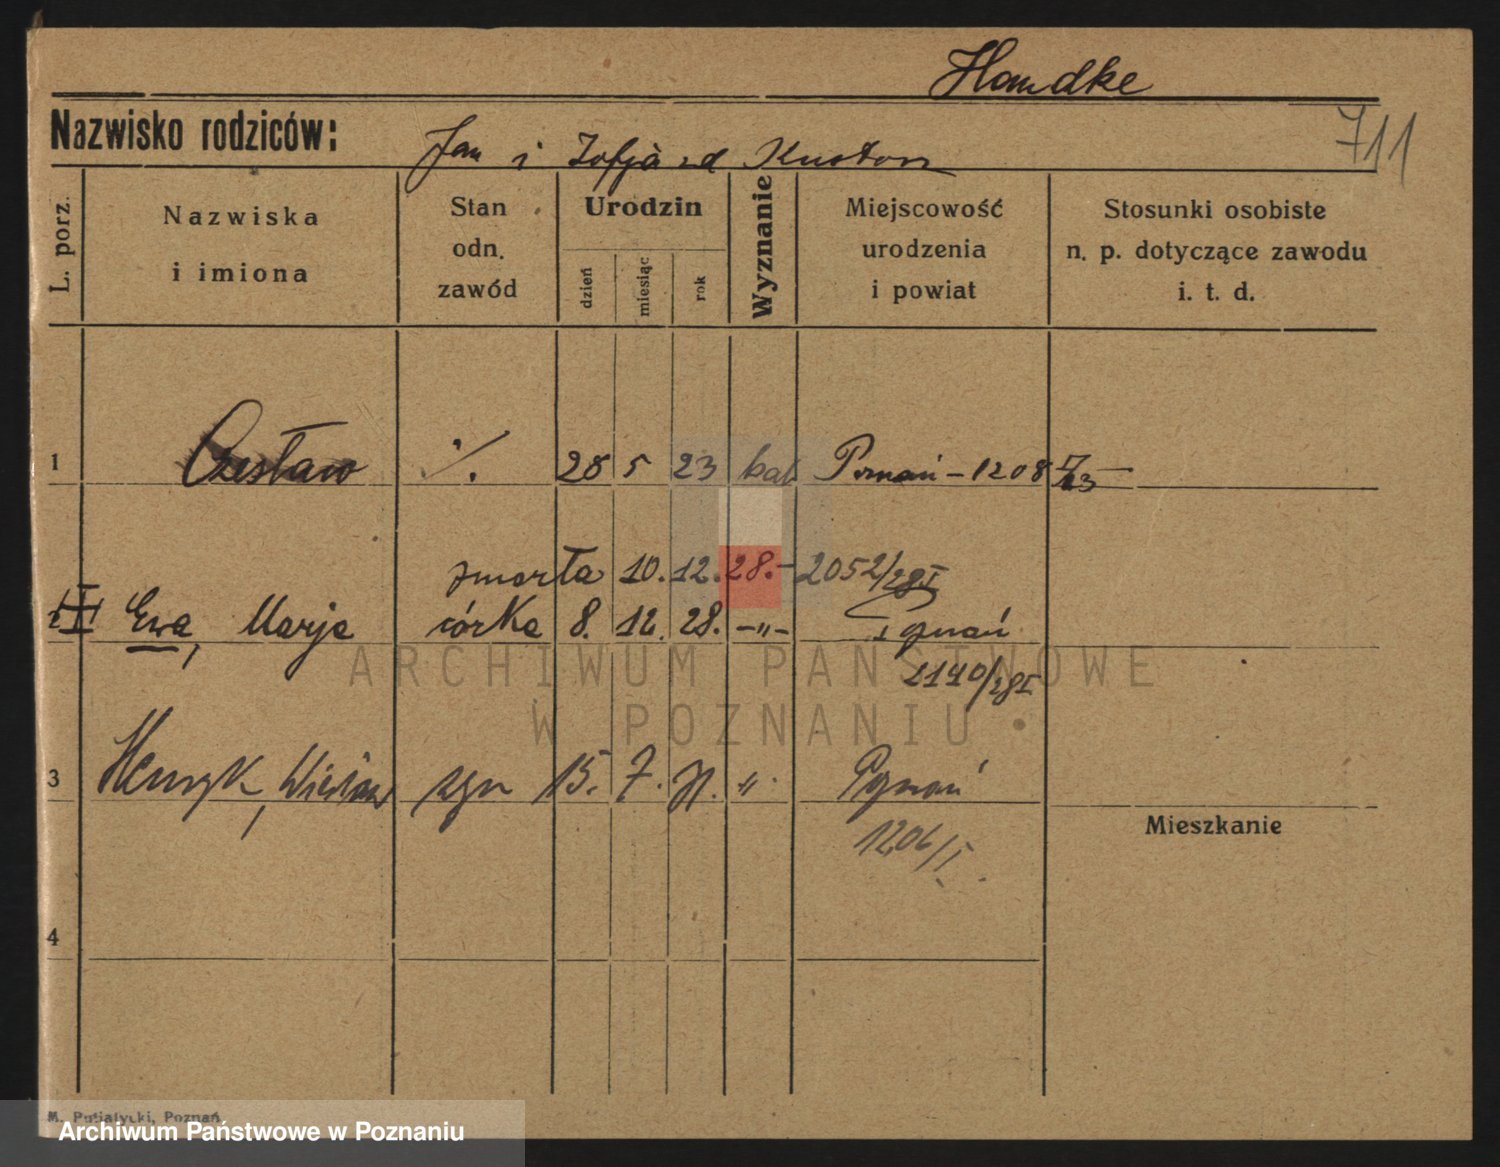 Handke
Nazwisko rodziców:
711
Jan i Zofja zd Kuston
L. porz.
Nazwiska
i imiona
Stan
odn.
zawód
Urodzin
dzień
miesiąc
rok
Wyznanie
Miejscowość
urodzenia
i powiat
Stosunki osobiste
n. p. dotyczące zawodu
i. t. d.
1 Czesław ·/. 28 5 23 kat Poznań - 1208 I/23
zmarła 10. 12. 28. - 2052/28I
Ewa, Marja córka 8. 12. 28. -„- Poznań
ARCHIWUM PAŃSTWOWE
2140/28I
W POZNANIU
3 Henryk, Wiesław syn 15. 7. 31. „ Poznań
1206/I.
Mieszkanie
4
M. Putiatycki, Poznań.
Archiwum Państwowe w Poznaniu